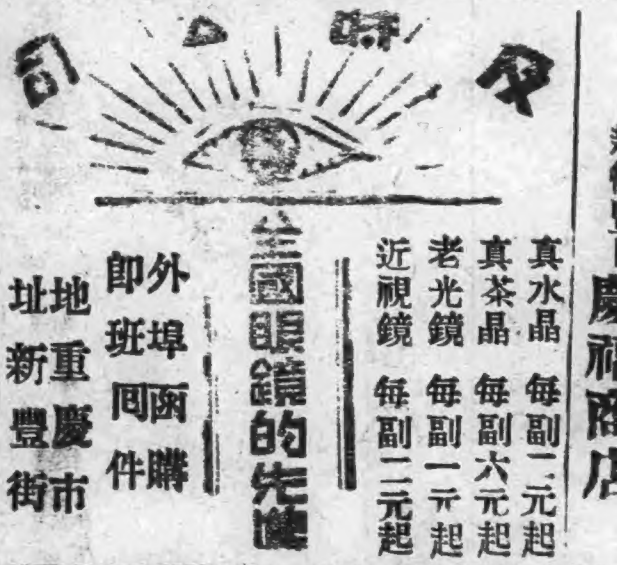 慶福商店
及時公司
真水晶 每副二元起
真茶晶 每副六元起
老光鏡 每副一元起
近視鏡 每副二元起
全國眼鏡的先進
外埠函購
即班囘件
地重慶市
址新豐街